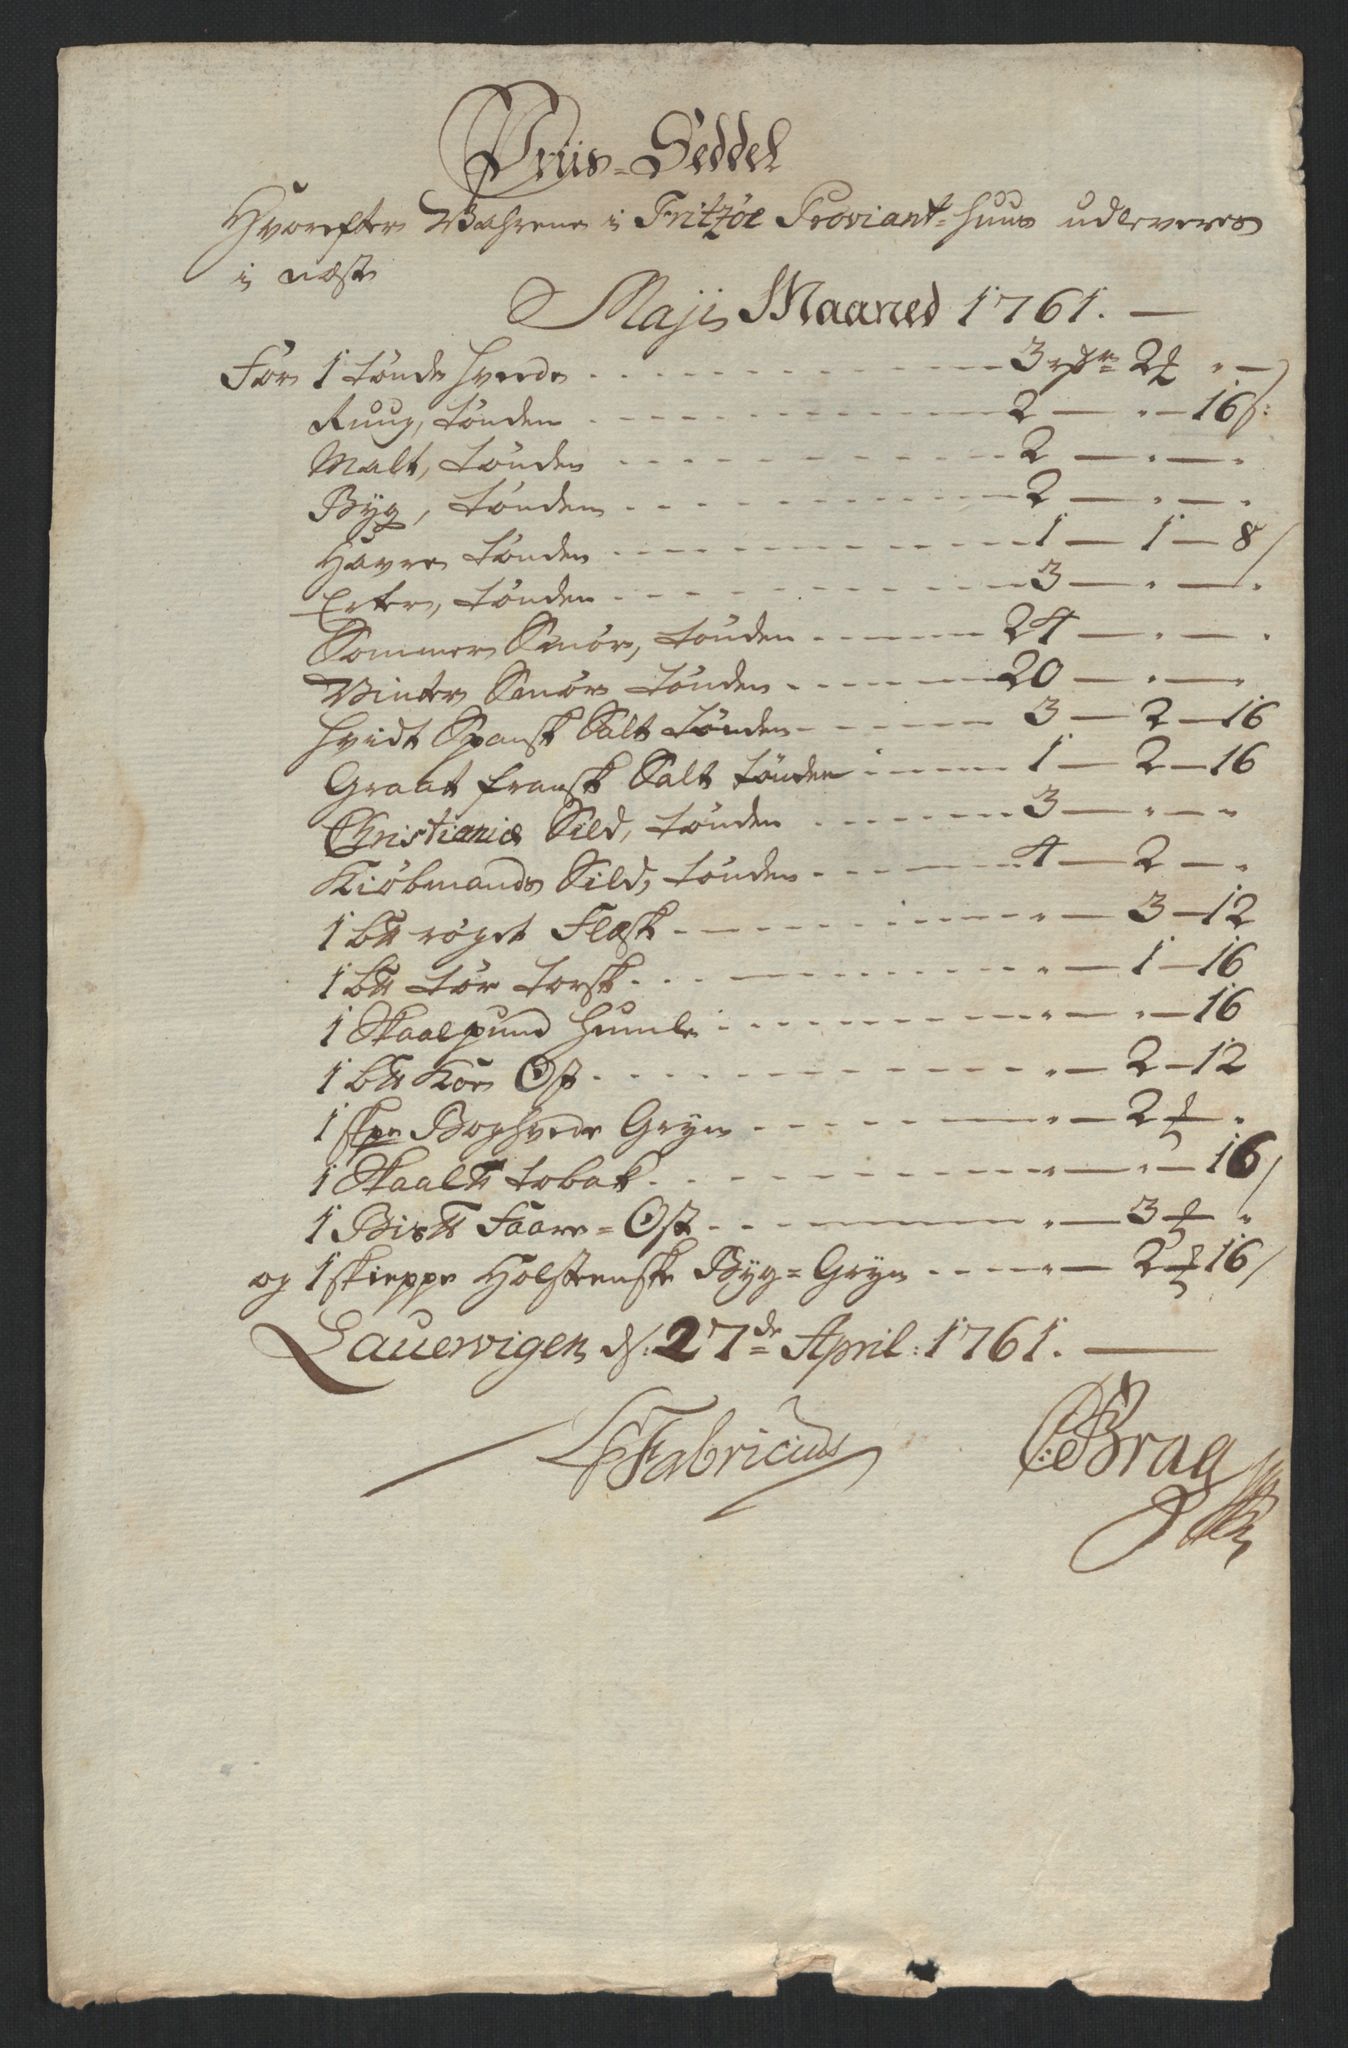 Priis-Seddel
Hvorefter Vahrene i Fritzøe Proviant-Huus udleveres
i næste
Maji Maaned 1761. —
For 1 Tønde Hvede . . . 3 rdr 2 ₰ " —
Ruug, Tønden . . . 2 — " — 16 s:
Malt, Tønden . . . 2 — " — "
Byg, Tønden . . . 2 — " — "
Havre Tønden . . . 1 — 1 — 8/
Erter, Tønden . . . 3 — " — "
Sommer Smør, Tønden . . . 24 — " — "
Vinter Smør Tønden . . . 20 — " — "
Hvidt Spansk Salt Tønden . . . 3 — 2 — 16
Graat fransk Salt Tønden . . . 1 — 2 — 16
Christiania Sild, Tønden . . . 3 — " — "
Kiøbmands Sild, Tønden . . . 4 — 2 — "
1 b℔ røget Flæsk . . . " — 3 — 12
1 b℔ Tør Torsk . . . " — 1 — 16
1 Skaalpund Humle . . . " — " — 16
1 b℔ Koe Ost . . . " — 2 — 12
1 skpe Boghvede Gryn . . . " — 2 ₰ "
1 Skaal℔ Tobak . . . " — " — 16/
1 Bis℔ Faare-Ost . . . " — 3 ₰ "
og 1 skieppe Holstensk Byg-Gryn . . . " — 2 ₰ 16/
Laurvigen d: 27de April: 1761. —
Fabricius CBrag